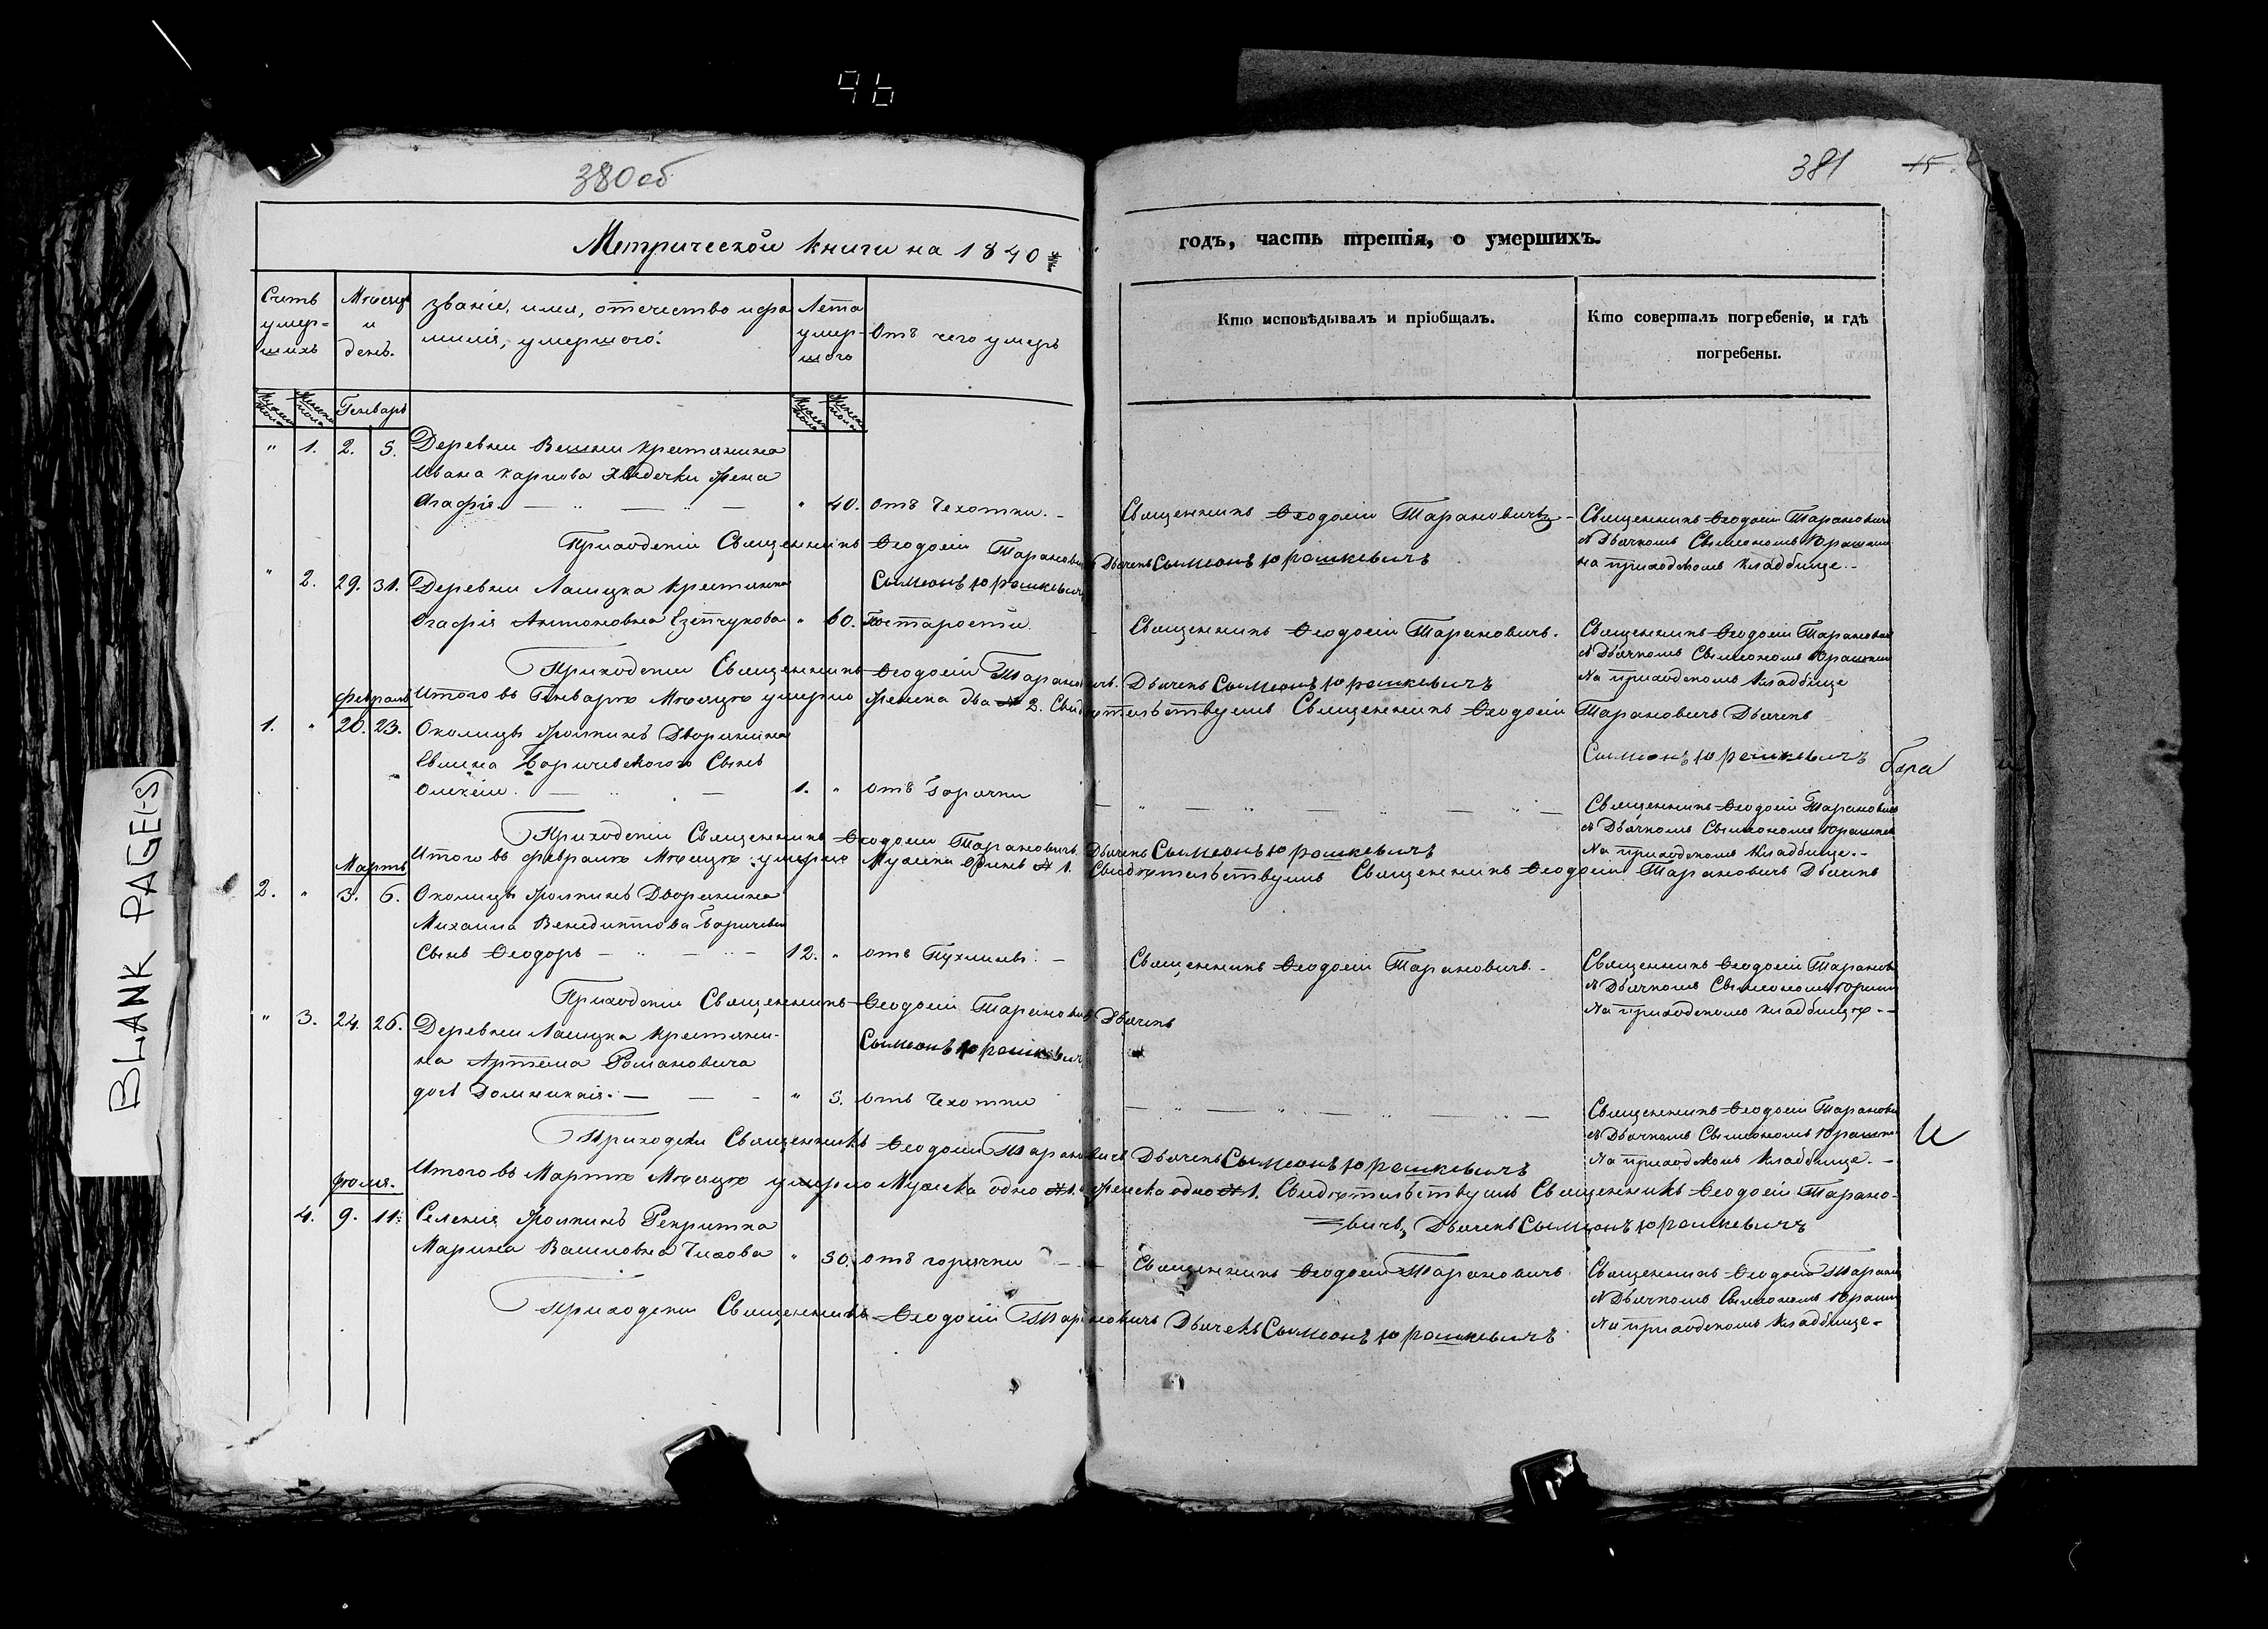 96
380 об
381
15
BLANK PAGE(S)
Метрической книги на 1840й
годъ, часть третія, о умершихъ.
Счетъ умер-шихъ
Мѣсяцъ и день.
званіе, имя, отчество и фамилія, умершого.
Лета умер-шого
Отъ чего умеръ
Кто исповѣдывалъ и пріобщалъ.
Кто совершалъ погребеніе, и гдѣ
погребены.
Генварь
" 1. 2. 5. Деревни Вешни крестянина
Ивана Карпова жена
Агафія. " 40. отъ Чехотки.
Священникъ Ѳеодосій Тарановичъ
Священникъ Ѳеодосій Тарановичъ
съ Дьячкомъ Сѵмеономъ Юрашкев
на приходскомъ кладбище.
Приходскій Священникъ Ѳеодосій Тарановичъ Дьячекъ Сѵмеонъ Юрашкевичъ
" 2. 29. 31. Деревни Лашцка крестянка
Сѵмеонъ Юрашкевичъ
Агафія Антоновна " 60. Постарости.
Священникъ Ѳеодосій Тарановичъ.
Священникъ Ѳеодосій Тарановичъ
съ Дьячкомъ Сѵмеономъ Юрашкев
На приходскомъ кладбище
Приходскій Священникъ Ѳеодосій Тарановичъ. Дьячекъ Сѵмеонъ Юрашкевичъ
Февраль
Итого въ Генварѣ Мѣсяцѣ умерло женска два № 2. Свидѣтельствуемъ Священникъ Ѳеодосій Тарановичъ Дьячекъ
Сѵмеонъ Юрашкевичъ
1. " 20. 23. Околицы Жолкинъ Дворянина
Боричевского Сынъ
Олексій. 1. " отъ Горячки
Священникъ Ѳеодосій Тарановичъ
съ Дьячкомъ Сѵмеономъ Юрашкев
На приходскомъ кладбище.
Приходскій Священникъ Ѳеодосій Тарановичъ. Дьячекъ Сѵмеонъ Юрашкевичъ
Мартъ
Итого въ Февралѣ Мѣсяцѣ умерло Мужска одинъ № 1. Свидѣтельствуемъ Священникъ Ѳеодосій Тарановичъ Дьячекъ
2. " 3. 6. Околицы Жолкинъ Дворянина
Михаила Венедиктова Боричевск
Сынъ Ѳеодоръ 12. " отъ Пухлины.
Священникъ Ѳеодосій Тарановичъ.
Священникъ Ѳеодосій Таранов
съ Дьячкомъ Сѵмеономъ Юраш
На приходскомъ кладбищѣ.
Приходскій Священникъ Ѳеодосій Тарановичъ Дьячекъ
Сѵмеонъ Юрашкевичъ
" 3. 24. 26. Деревни Лашцка крестяни-
на Артема Романовича
дочь Домникія. " 3. отъ Чехотки
Священникъ Ѳеодосій Таранови
съ Дьячкомъ Сѵмеономъ Юрашке
На приходскомъ кладбище.
Приходски Священникъ Ѳеодосій Тарановичъ Дьячекъ Сѵмеонъ Юрашкевичъ
Итого въ Мартѣ Мѣсяцѣ умерло Мужска одно № 1. Женска одно № 1. Свидѣтельствуемъ Священникъ Ѳеодосій Тарано-
вичъ, Дьячекъ Сѵмеонъ Юрашкевичъ
4. 9. 11. Селенія Жолкинъ Рекрутка
Марина Василовна Чихова " 30. отъ горячки
Священникъ Ѳеодосій Тарановичъ
Священникъ Ѳеодосій Таран
съ Дьячкомъ Сѵмеономъ Юраш
На приходскомъ кладбище.
Приходски Священникъ Ѳеодосій Тарановичъ Дьячекъ Сѵмеонъ Юрашкевичъ